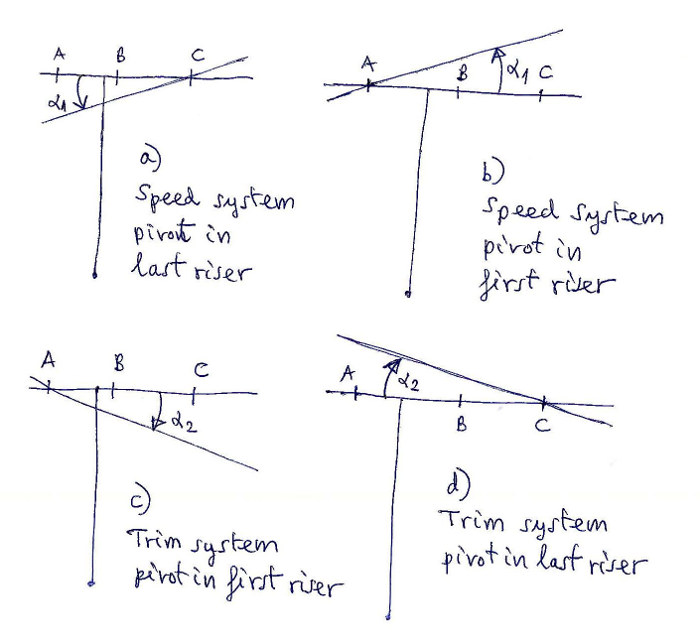 A B C
α1
a)
Speed system
pivot in
last riser
A B C
α1
b)
Speed system
pivot in
first riser
A B C
α2
c)
Trim system
pivot in first riser
A B C
α2
d)
Trim system
pivot in last riser